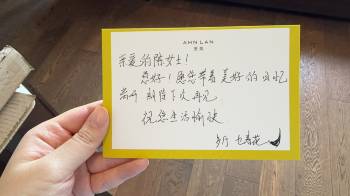 AHN LAN
安岚
亲爱的陈女士!
您好!愿您带着美好的回忆
离开 期待下次再见
祝您生活愉快